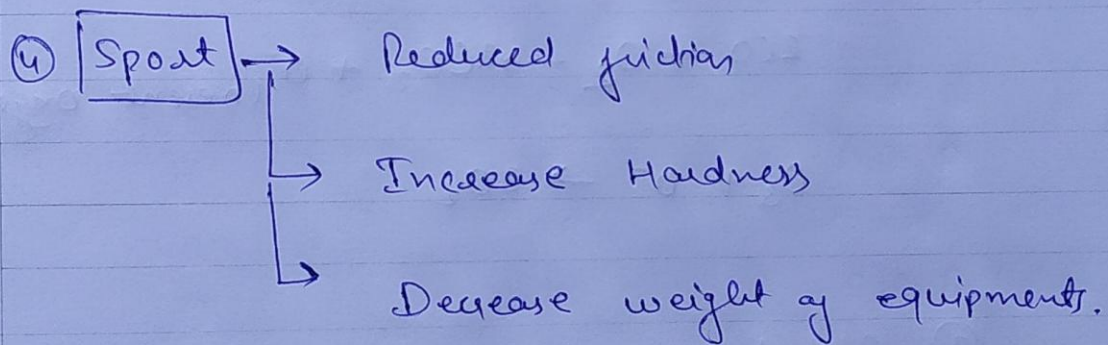 ④ Sport → Reduced friction
→ Increase Hardness
→ Decrease weight of equipments.